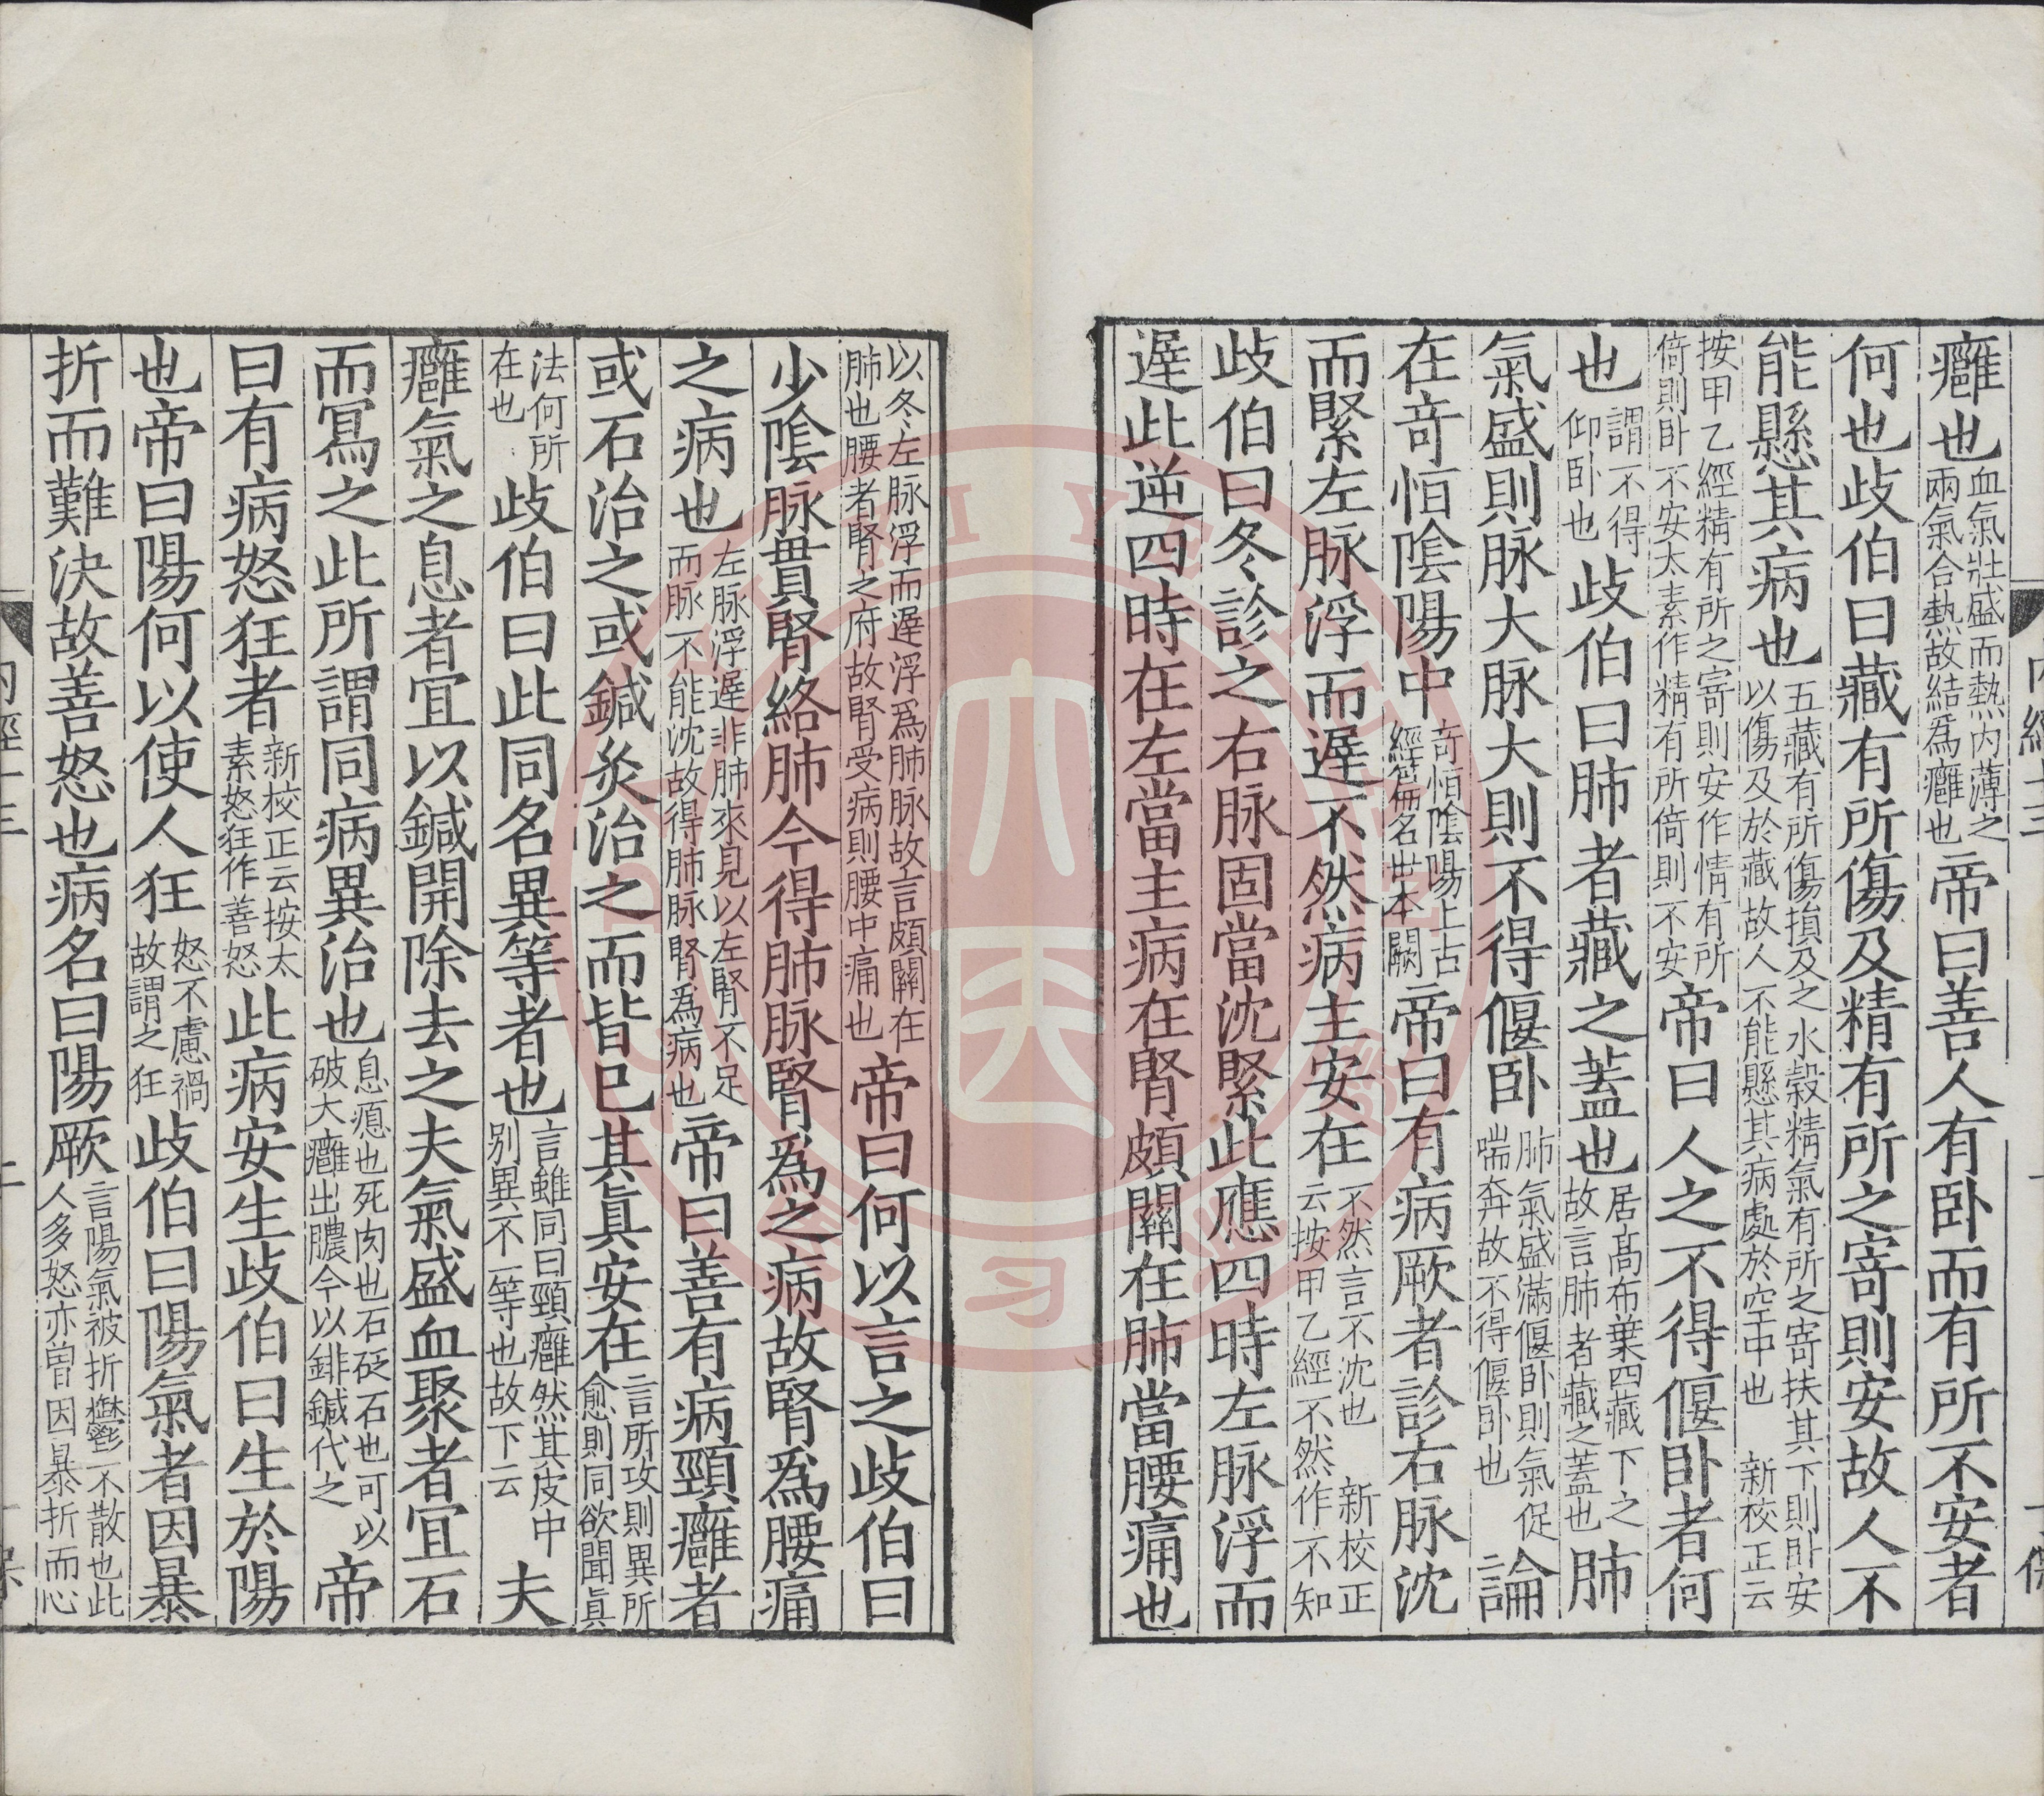 癰也血氣壯盛而熱內薄之兩氣合熱故結爲癰也帝曰善人有卧而有所不安者
何也歧伯曰藏有所傷及精有所之寄則安故人不
能懸其病也五藏有所傷損及之水榖精氣有所之寄扶其下則卧安以傷及於藏故人不能懸其病處於空中也 新校正云
按甲乙經精有所之寄則安作情有所倚則卧不安太素作精有所倚則不安帝曰人之不得偃卧者何
也謂不得仰卧也歧伯曰肺者藏之蓋也居髙布葉四藏下之故言肺者藏之蓋也肺
氣盛則脉大脉大則不得偃卧肺氣盛滿偃卧則氣促喘奔故不得偃卧也論
在奇恒陰陽中奇恒陰陽上古經篇名世本闕帝曰有病厥者診右脉沈
而緊左脉浮而遲不然病主安在不然言不沈也 新校正云按甲乙經不然作不知
歧伯曰冬診之右脉固當沈緊此應四時左脉浮而
遲此逆四時在左當主病在腎頗關在肺當腰痛也
以冬左脉浮而遲浮爲肺脉故言頗關在肺也腰者腎之府故腎受病則腰中痛也帝曰何以言之歧伯曰
少陰脉貫腎絡肺今得肺脉腎爲之病故腎爲腰痛
之病也左脉浮遲非肺來見以左腎不足而脉不能沈故得肺脉腎爲病也帝曰善有病頸癰者
或石治之或鍼灸治之而皆已其眞安在言所攻則異所愈則同欲聞眞
法何所在也歧伯曰此同名異等者也言雖同曰頸癰然其皮中别異不一等也故下云夫
癰氣之息者宜以鍼開除去之夫氣盛血聚者宜石
而寫之此所謂同病異治也息瘜也死肉也石砭石也可以破大癰出膿今以鈹鍼代之帝
曰有病怒狂者新校正云按太素怒狂作善怒此病安生歧伯曰生於陽
也帝曰陽何以使人狂怒不慮禍故謂之狂歧伯曰陽氣者因暴
折而難決故善怒也病名曰陽厥言陽氣被折鬱不散也此人多怒亦曽因暴折而心